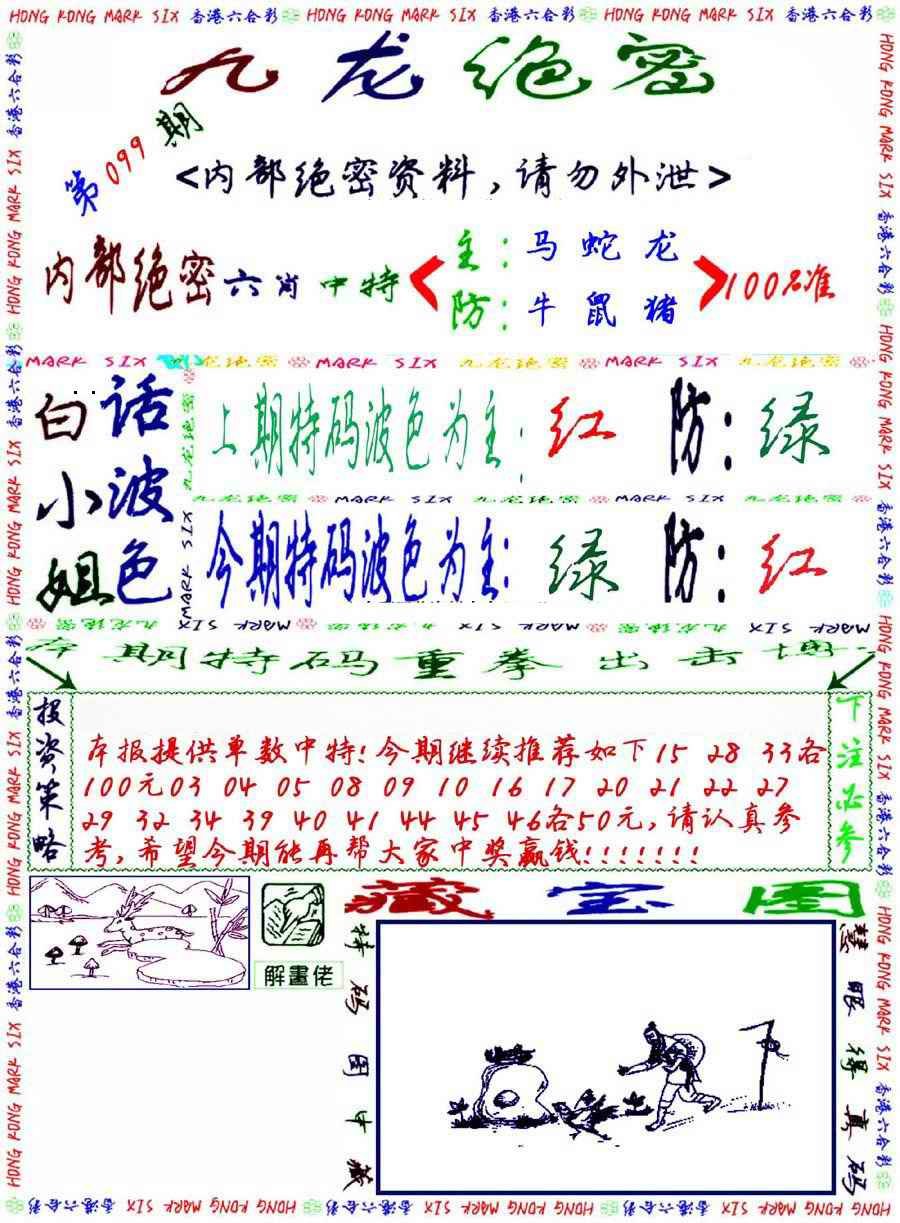 HONG KONG MARK SIX 香港六合彩 HONG KONG MARK SIX 香港六合彩 HONG KONG MARK SIX 香港六合彩
九龙绝密
第099期
<内部绝密资料,请勿外泄>
内部绝密六肖中特
主:马蛇龙
防:牛鼠猪
100%准
MARK SIX 九龙绝密 MARK SIX 九龙绝密 MARK SIX 九龙绝密
白小姐
话波色
上期特码波色为主:红 防:绿
九龙绝密 MARK SIX 九龙绝密 MARK SIX 九龙绝密
今期特码波色为主:绿 防:红
本期特码重拳出击
投资策略
本报提供单数中特!今期继续推荐如下15 28 33各
100元03 04 05 08 09 10 16 17 20 21 22 27
29 32 34 39 40 41 44 45 46各50元,请认真参
考,希望今期能再帮大家中奖赢钱!!!!!!!
下注必参
解畫佬
藏宝图
特码图中藏
慧眼得真码
HONG KONG MARK SIX 香港六合彩 HONG KONG MARK SIX 香港六合彩 HONG KONG MARK SIX 香港六合彩